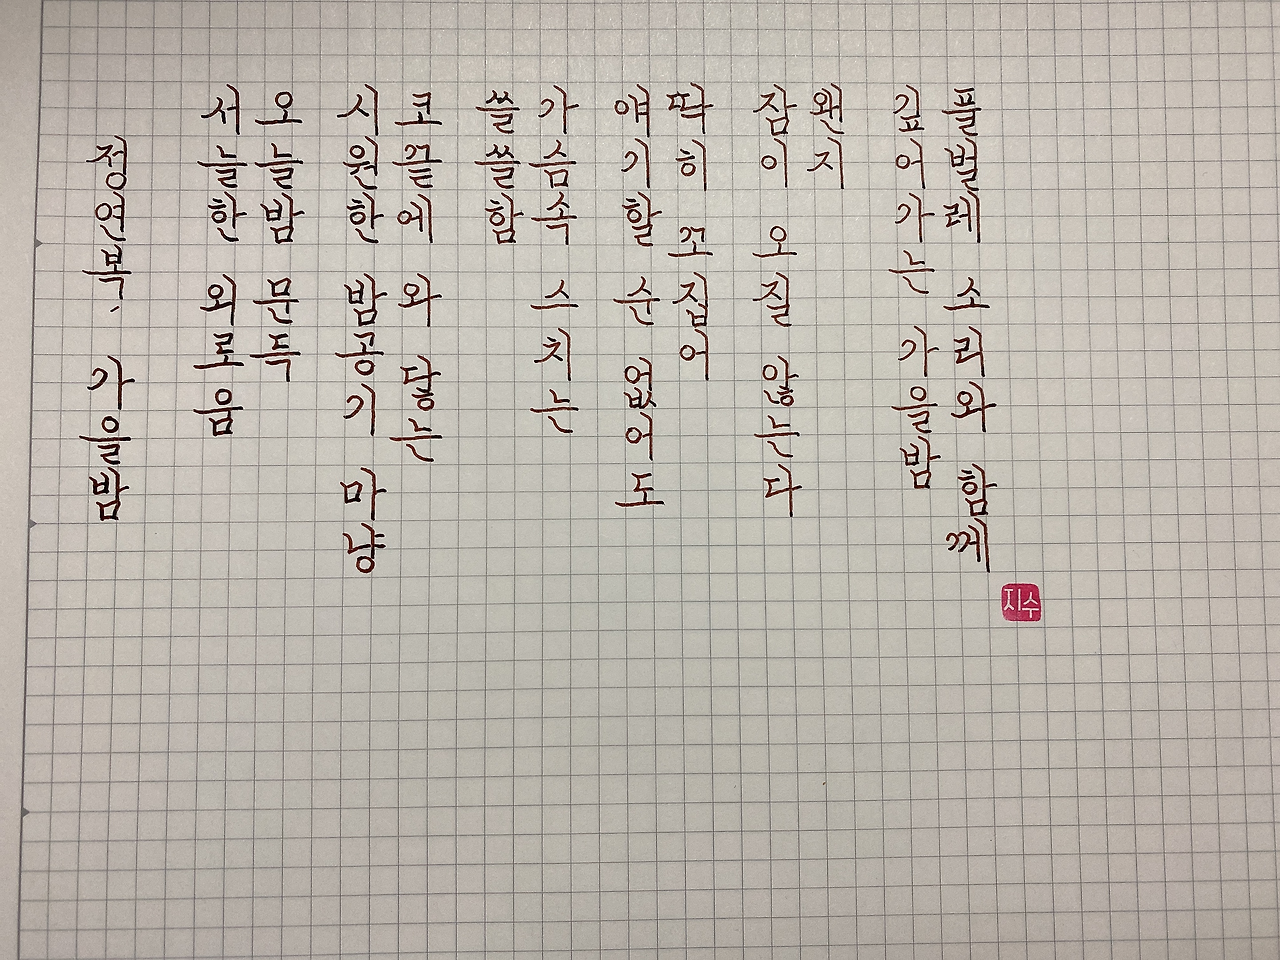 풀벌레 소리와 함께
깊어가는 가을밤
왠지
잠이 오질 않는다
딱히 꼬집어
얘기할 순 없어도
가슴속 스치는
쓸쓸함
코끝에 와 닿는
시원한 밤공기 마냥
오늘밤 문득
서늘한 외로움
정연복, 가을밤
지수